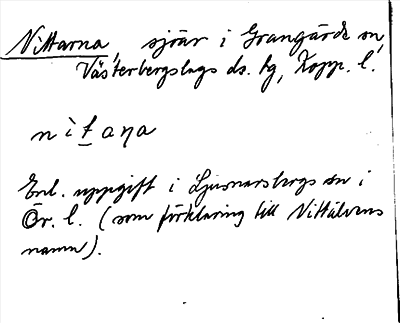 Nittarna, sjöar i Grangärde sn,
Västerbergslags ds. hg, Kopp. l.
nitaṇa
Enl. uppgift i Ljusnarsbergs sn i
Ör. l. (som förklaring till Nittälvens
namn).